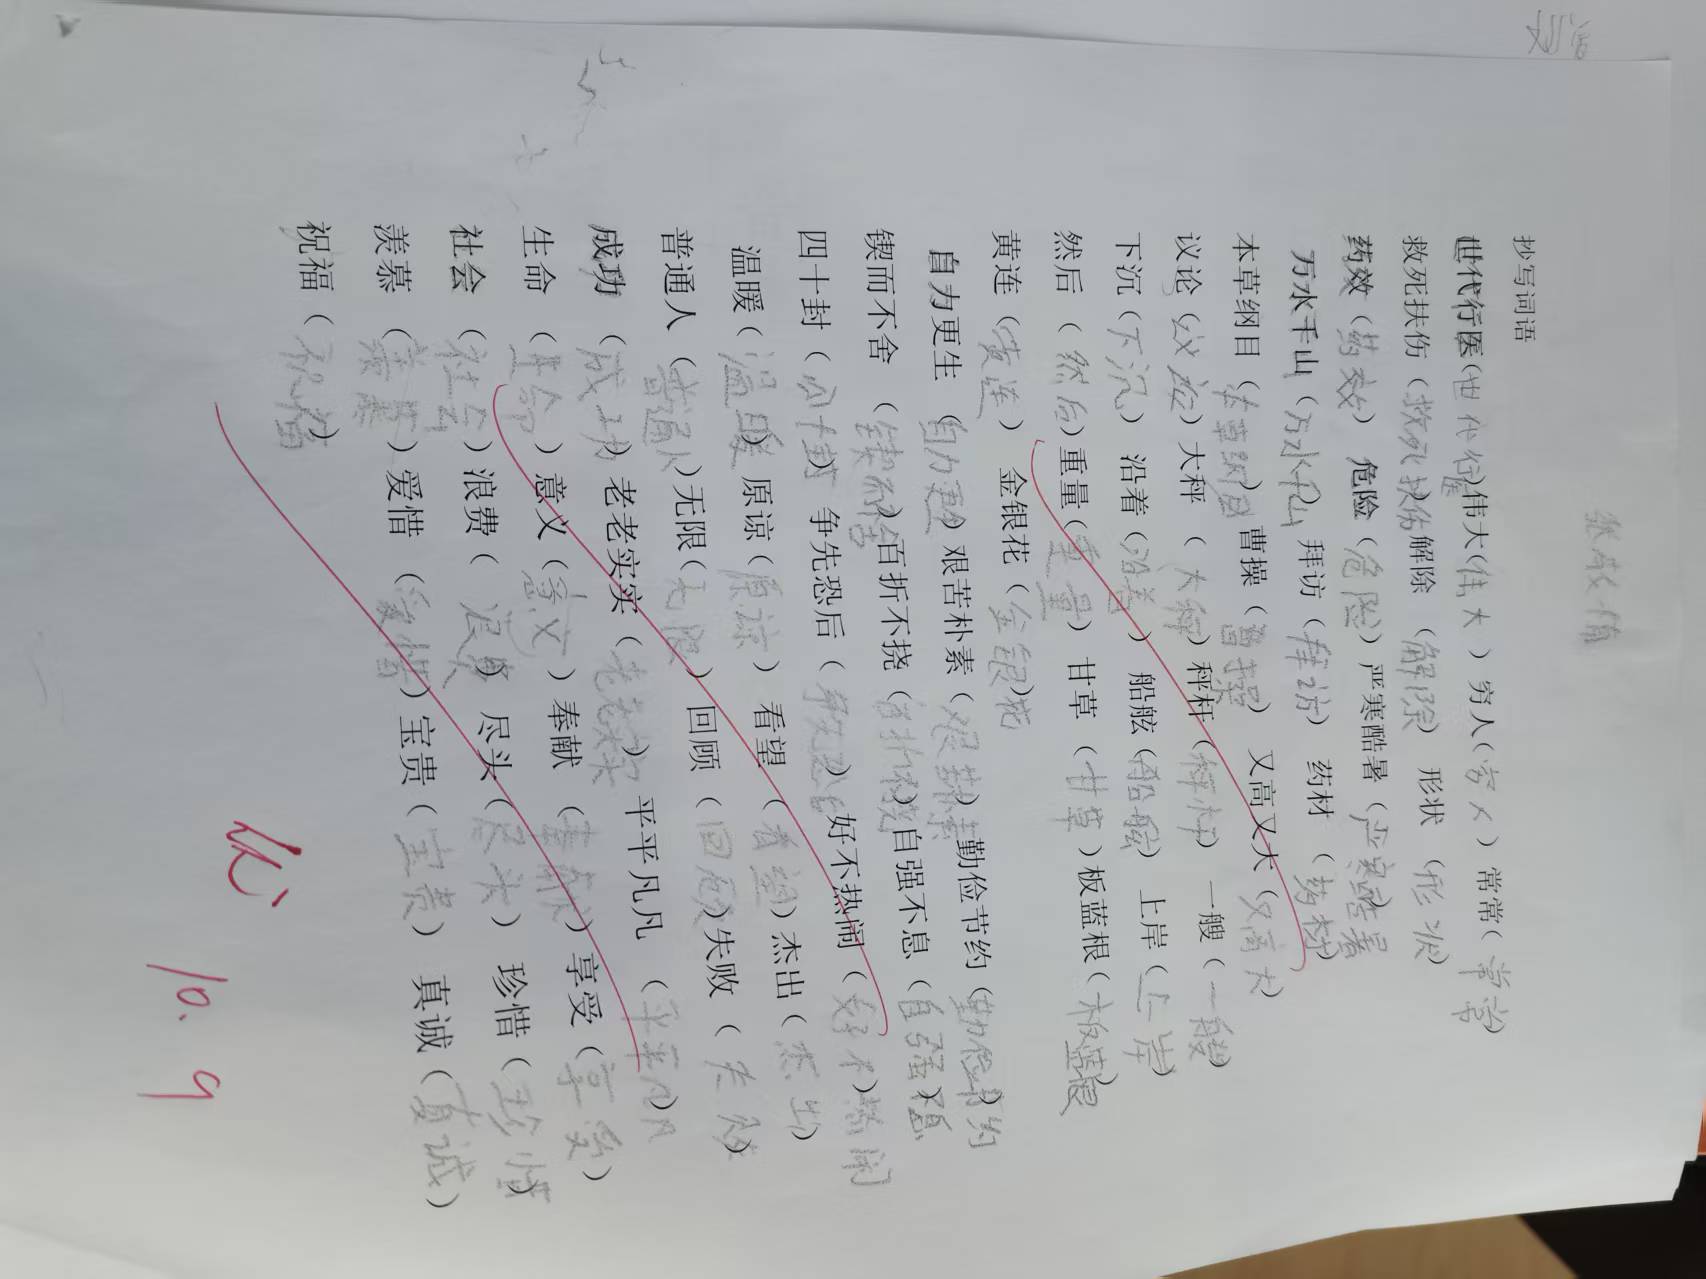 抄写词语
世代行医（世代行医）伟大（伟大）穷人（穷人）常常（常常）
救死扶伤（救死扶伤）解除（解除）形状（形状）
药效（药效）危险（危险）严寒酷暑（严寒酷暑）
万水千山（万水千山）拜访（拜访）药材（药材）
本草纲目（本草纲目）曹操（曹操）又高又大（又高大）
议论（议论）大秤（大秤）秤杆（秤杆）一艘（一艘）
下沉（下沉）沿着（沿着）船舷（船舷）上岸（上岸）
然后（然后）重量（重量）甘草（甘草）板蓝根（板蓝根）
黄连（黄连）金银花（金银花）
自力更生（自力更生）艰苦朴素（艰苦朴素）勤俭节约（勤俭节约）
锲而不舍（锲而不舍）百折不挠（百折不挠）自强不息（自强不息）
四十封（四十封）争先恐后（争先恐后）好不热闹（好不热闹）
温暖（温暖）原谅（原谅）看望（看望）杰出（杰出）
普通人（普通人）无限（无限）回顾（回顾）失败（失败）
成功（成功）老老实实（老老实实）平平凡凡（平平凡凡）
生命（生命）意义（意义）奉献（奉献）享受（享受）
社会（社会）浪费（浪费）尽头（尽头）珍惜（珍惜）
羡慕（羡慕）爱惜（爱惜）宝贵（宝贵）真诚（真诚）
祝福（祝福）
优
10.9